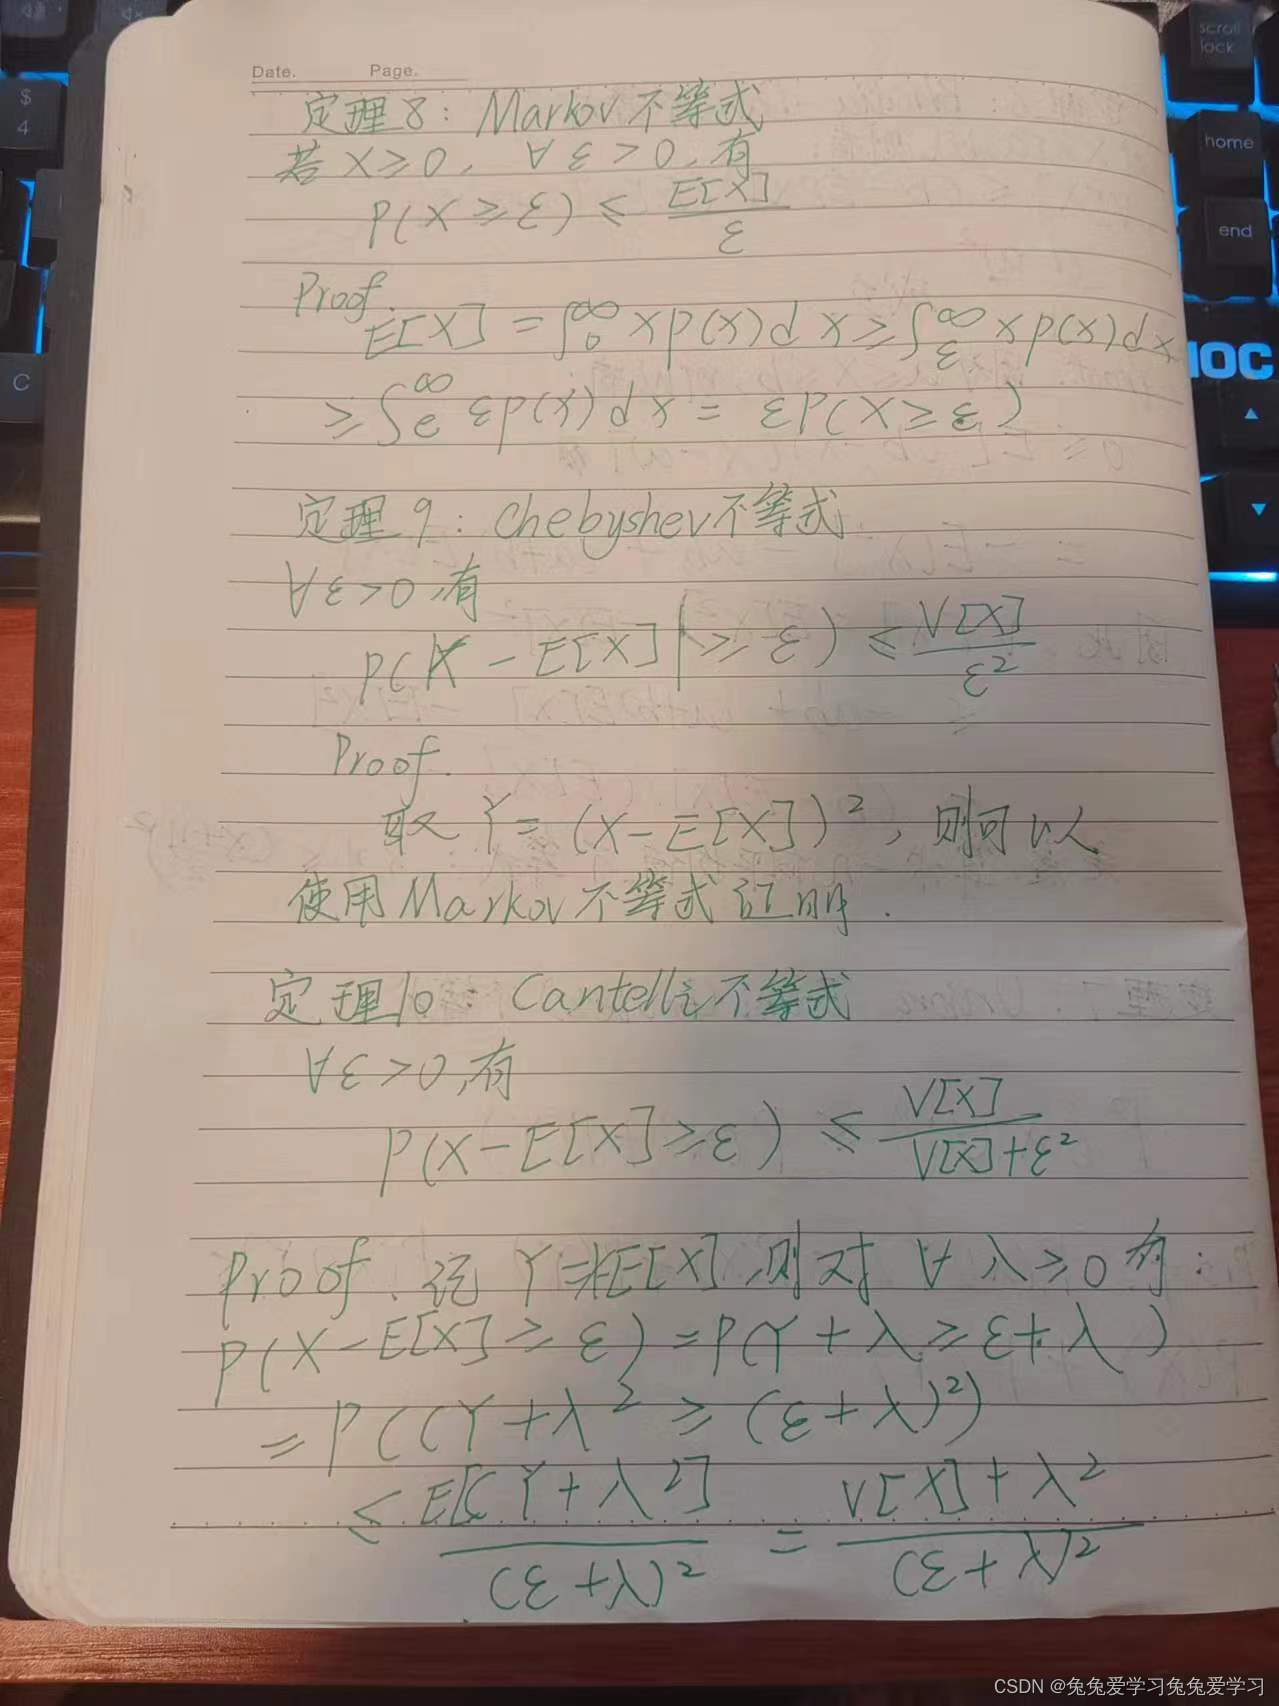 Date. Page.
定理8: Markov不等式
若X≥0, ∀ε>0,有
P(X≥ε) ≤ E[X]/ε
Proof.
E[X] = ∫₀^∞ xp(x)dx ≥ ∫_ε^∞ xp(x)dx
≥ ∫_ε^∞ εp(x)dx = εP(X≥ε)
定理9: Chebyshev不等式
∀ε>0,有
P(|X-E[X]|≥ε) ≤ V[X]/ε²
Proof.
取 Y=(X-E[X])², 则可以
使用Markov不等式证明.
定理10: Cantelli不等式
∀ε>0,有
P(X-E[X]≥ε) ≤ V[X]/(V[X]+ε²)
Proof. 记 Y=X-E[X],则对 ∀ λ≥0有:
P(X-E[X]≥ε)=P(Y+λ≥ε+λ)
=P((Y+λ²≥(ε+λ)²)
≤ E[(Y+λ²]/(ε+λ)² = (V[X]+λ²)/(ε+λ)²
$
4
C
scroll
lock
home
end
CSDN @兔兔爱学习兔兔爱学习